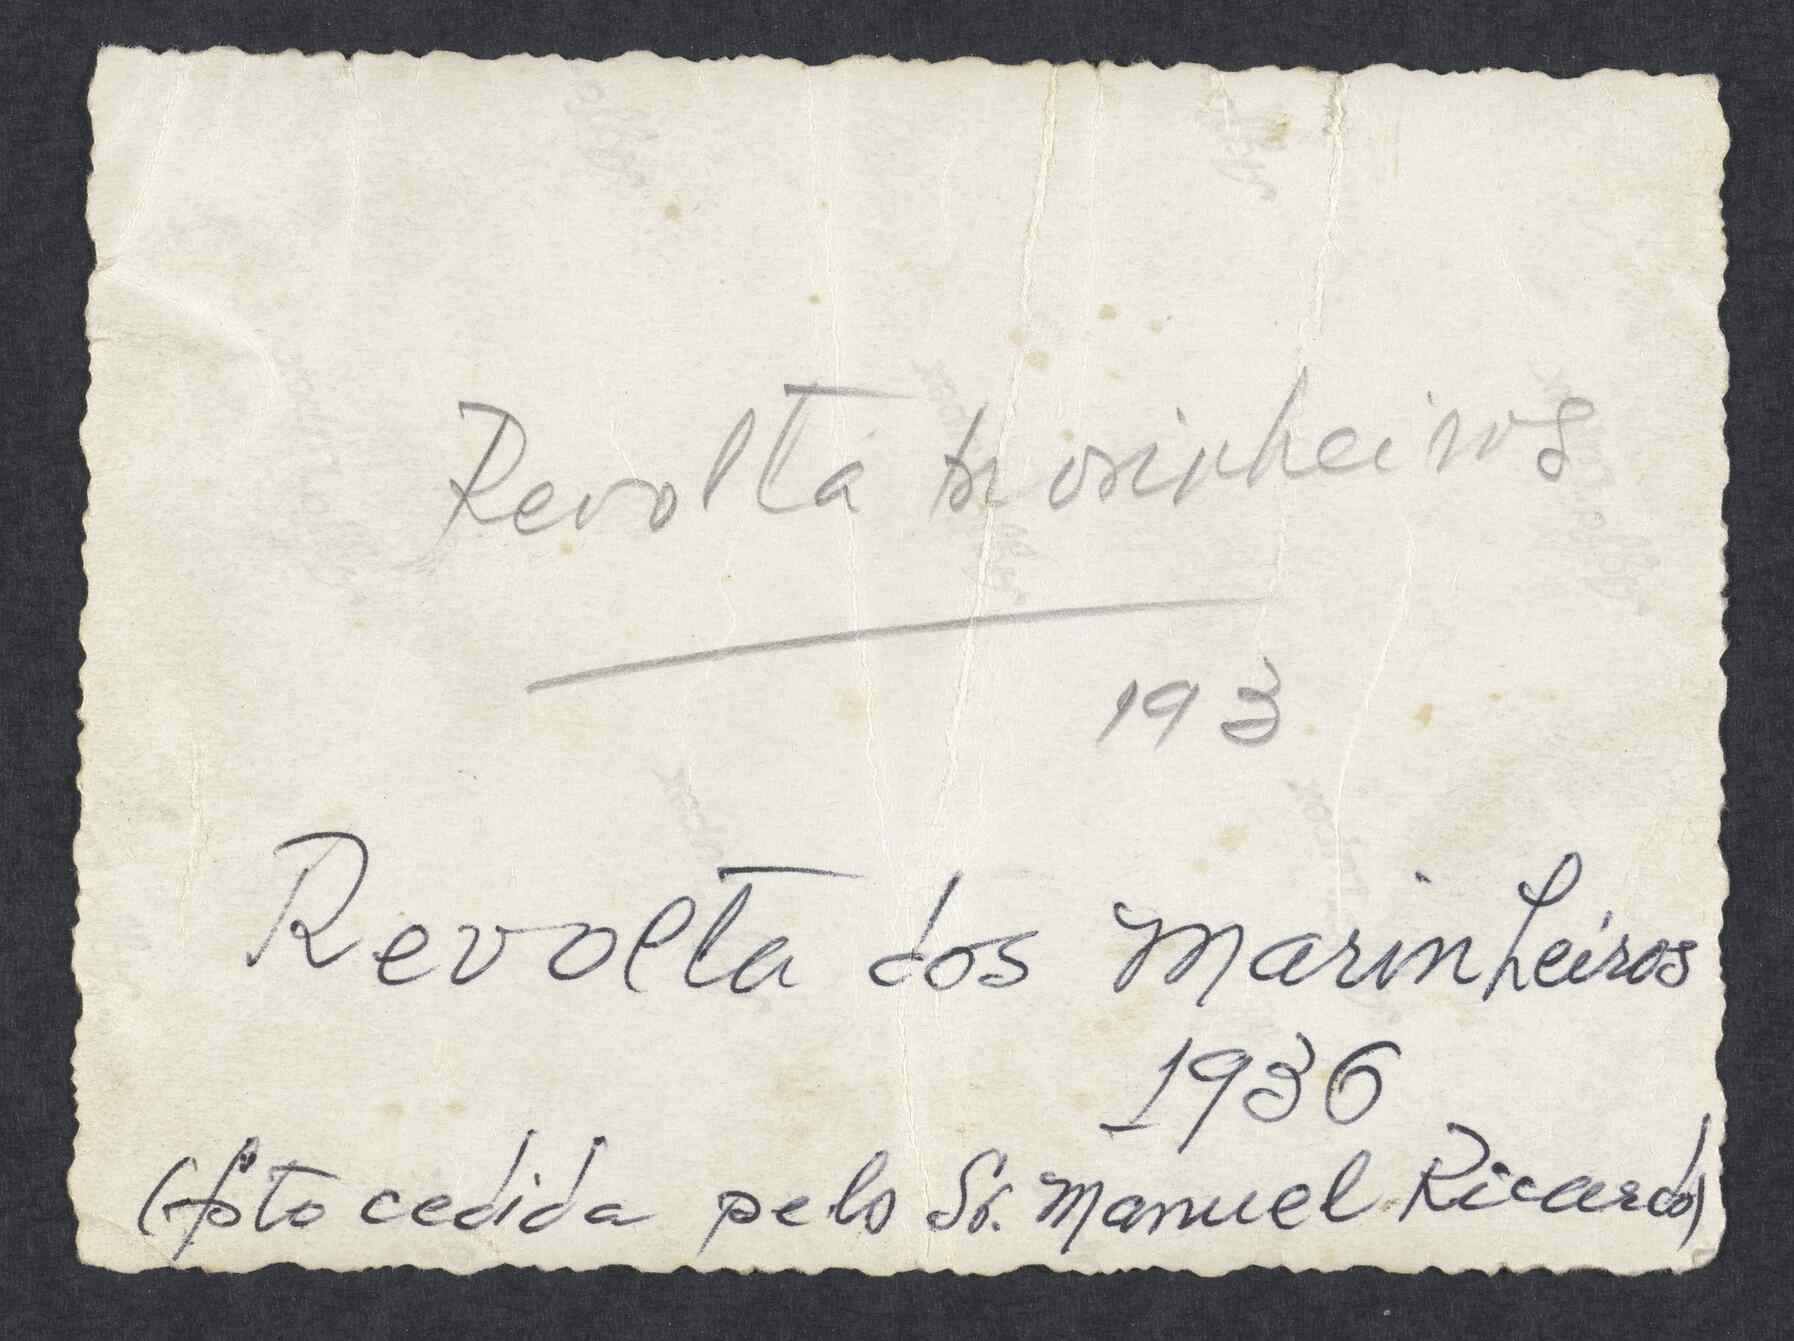 Revolta marinheiros
193
Revolta dos Marinheiros
1936
(foto cedida pelo Sr. Manuel Ricardo)